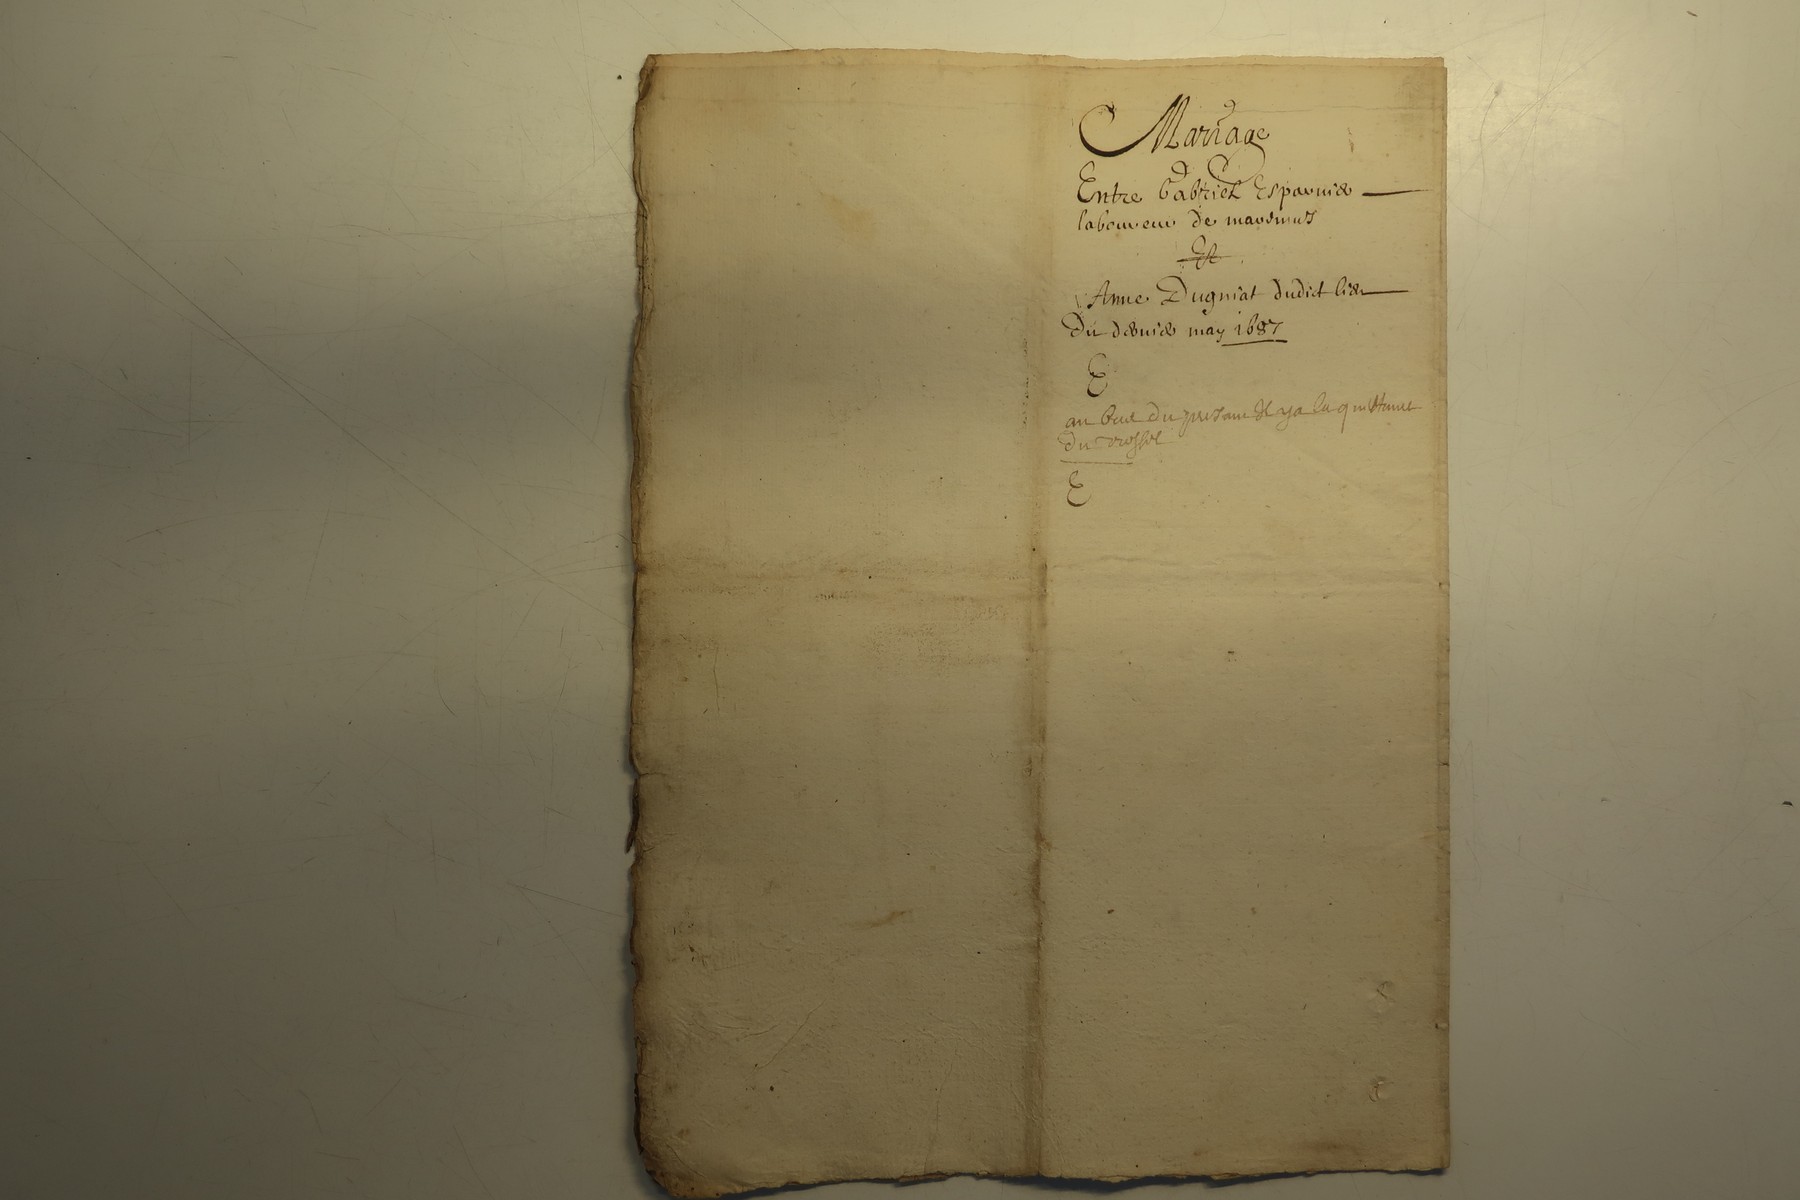 Mariage
Entre Gabriel Esparnier
laboureur de
Et
Anne Dugniat dudict lieu
Du dernier may 1687
E
au bas du presant Il y a la quittance
du
E